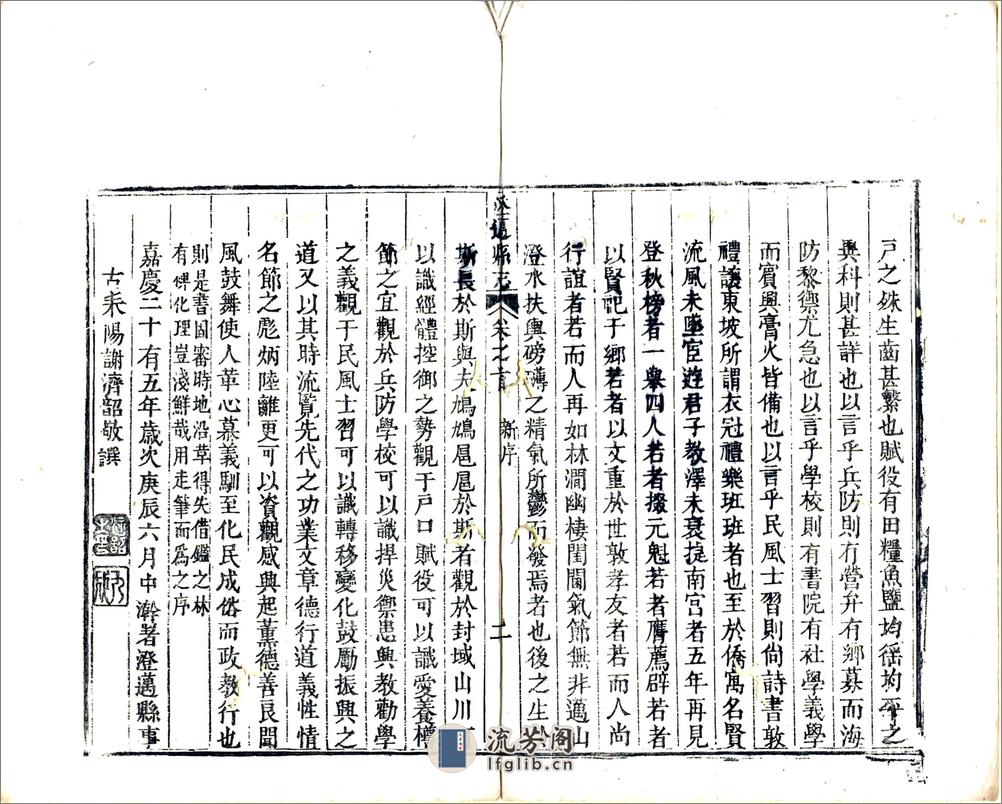 戸之殊生齒甚繁也賦役有田糧魚鹽均徭均平之
與科則甚詳也以言乎兵防則有營弁有鄉募而海
防黎禦尤急也以言乎學校則有書院有社學義學
而賓興膏火皆備也以言乎民風士習則尙詩書敦
禮讓東坡所謂衣冠禮樂班班者也至於僑寓名賢
流風未墜宦遊君子教澤未衰捷南宮者五年再見
登秋榜者一舉四人若者掇元魁若者膺薦辟若者
以賢記于鄉若者以文重於世敦孝友者若而人尚
行誼者若而人再如林澗幽棲閨閫氣節無非邁山
澄水扶輿磅礴之精氣所鬱而發焉者也後之生於
澄邁縣志 卷之首 新序 二
斯長於斯與夫鳩鳩扈扈於斯者觀於封域山川
以識經體控御之勢觀于戸口賦役可以識愛養樽
節之宜觀於兵防學校可以識捍災禦患興教勸學
之義觀于民風士習可以識轉移變化鼓勵振興之
道又以其時流覽先代之功業文章德行道義性情
名節之彪炳陸離更可以資觀感興起薰德善良聞
風鼓舞使人革心慕義馴至化民成俗而政教行也
則是書固審時地沿革得失借鑑之林
有裨化理豈淺鮮哉用走筆而爲之序
嘉慶二十有五年歲次庚辰六月中澣署澄邁縣事
古耒陽謝濟韶敬譔
流芳閣
lfglib.cn